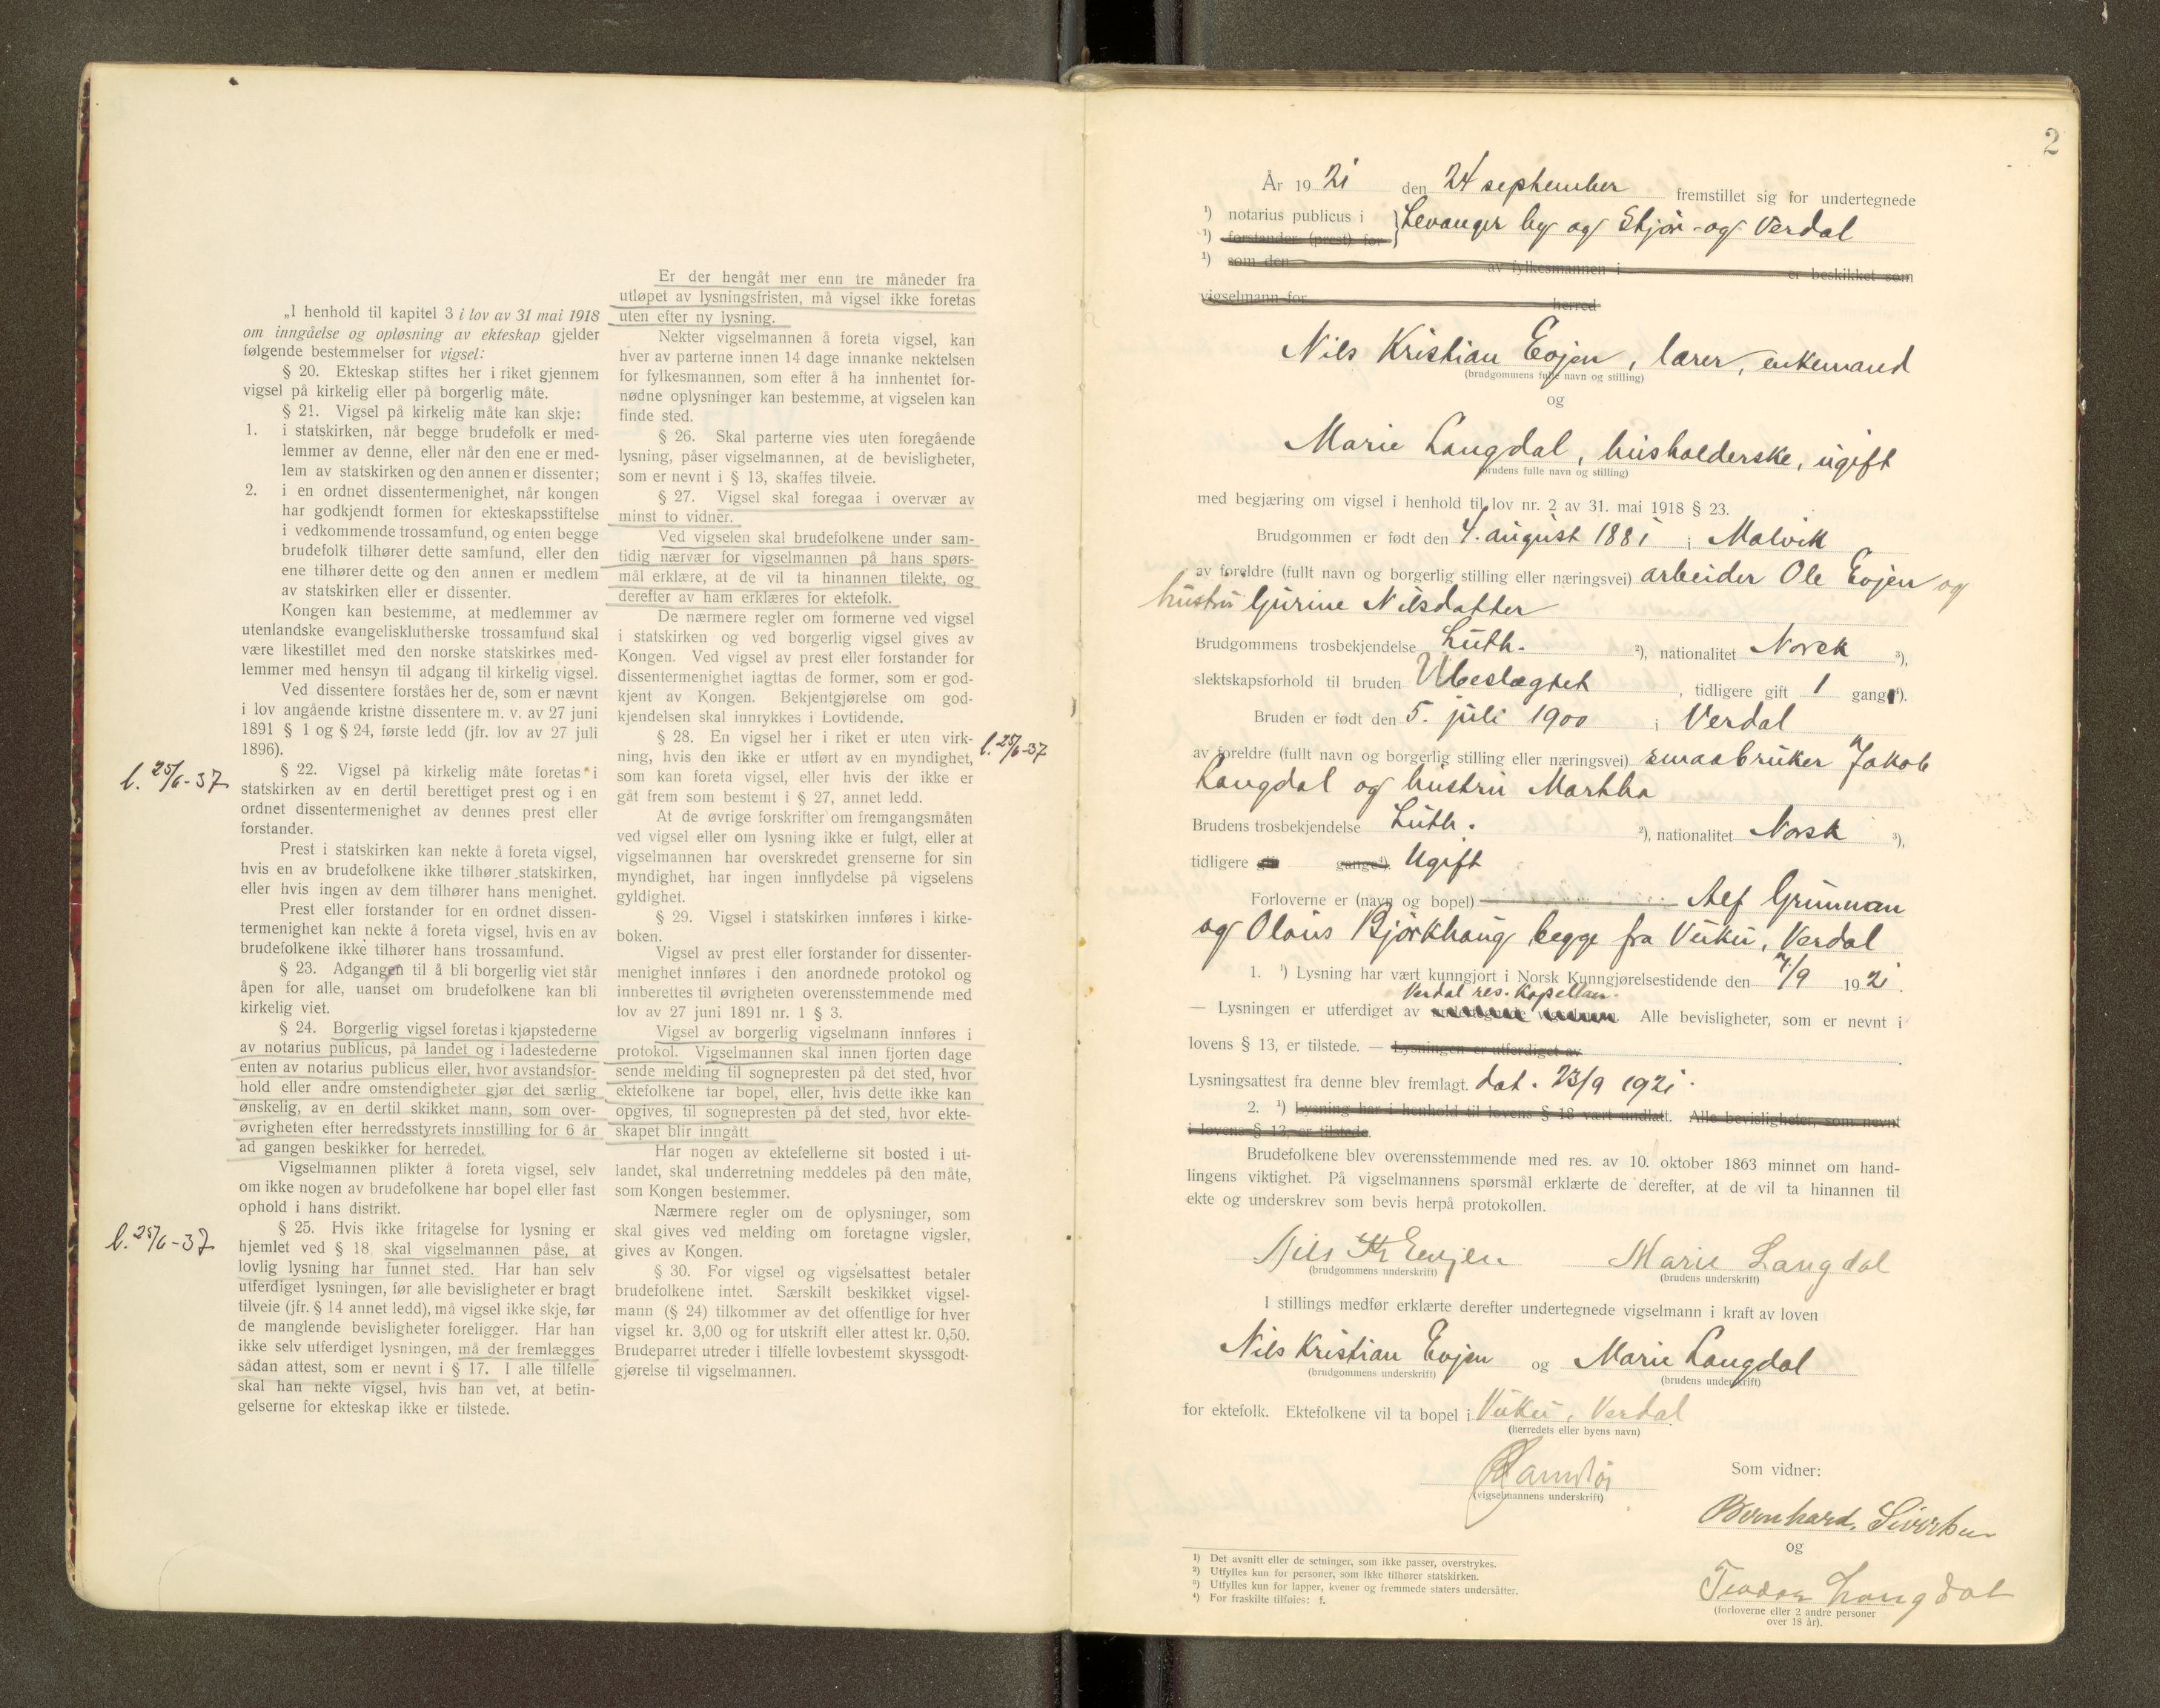 „I henhold til kapitel 3 i lov av 31 mai 1918
om inngåelse og opløsning av ekteskap gjelder
følgende bestemmelser for vigsel:
§ 20. Ekteskap stiftes her i riket gjennem
vigsel på kirkelig eller på borgerlig måte.
§ 21. Vigsel på kirkelig måte kan skje:
1. i statskirken, når begge brudefolk er med-
lemmer av denne, eller når den ene er med-
lem av statskirken og den annen er dissenter;
2. i en ordnet dissentermenighet, når kongen
har godkjendt formen for ekteskapsstiftelse
i vedkommende trossamfund, og enten begge
brudefolk tilhører dette samfund, eller den
ene tilhører dette og den annen er medlem
av statskirken eller er dissenter.
Kongen kan bestemme, at medlemmer av
utenlandske evangelisklutherske trossamfund skal
være likestillet med den norske statskirkes med-
lemmer med hensyn til adgang til kirkelig vigsel.
Ved dissentere forståes her de, som er nævnt
i lov angående kristne dissentere m. v. av 27 juni
1891 § 1 og § 24, første ledd (jfr. lov av 27 juli
1896).
l. 25/6-37
§ 22. Vigsel på kirkelig måte foretas i
statskirken av en dertil berettiget prest og i en
ordnet dissentermenighet av dennes prest eller
forstander.
Prest i statskirken kan nekte å foreta vigsel,
hvis en av brudefolkene ikke tilhører statskirken,
eller hvis ingen av dem tilhører hans menighet.
Prest eller forstander for en ordnet dissen-
termenighet kan nekte å foreta vigsel, hvis en av
brudefolkene ikke tilhører hans trossamfund.
§ 23. Adgangen til å bli borgerlig viet står
åpen for alle, uanset om brudefolkene kan bli
kirkelig viet.
§ 24. Borgerlig vigsel foretas i kjøpstederne
av notarius publicus, på landet og i ladestederne
enten av notarius publicus eller, hvor avstandsfor-
hold eller andre omstendigheter gjør det særlig
ønskelig, av en dertil skikket mann, som over-
øvrigheten efter herredsstyrets innstilling for 6 år
ad gangen beskikker for herredet.
Vigselmannen plikter å foreta vigsel, selv
om ikke nogen av brudefolkene har bopel eller fast
ophold i hans distrikt.
l. 25/6-37
§ 25. Hvis ikke fritagelse for lysning er
hjemlet ved § 18 skal vigselmannen påse, at
lovlig lysning har funnet sted. Har han selv
utferdiget lysningen, før alle bevisligheter er bragt
tilveie (jfr. § 14 annet ledd), må vigsel ikke skje, før
de manglende bevisligheter foreligger. Har han
ikke selv utferdiget lysningen, må der fremlægges
sådan attest, som er nevnt i § 17. I alle tilfelle
skal han nekte vigsel, hvis han vet, at betin-
gelserne for ekteskap ikke er tilstede.
Er der hengåt mer enn tre måneder fra
utløpet av lysningsfristen, må vigsel ikke foretas
uten efter ny lysning.
Nekter vigselmannen å foreta vigsel, kan
hver av parterne innen 14 dage innanke nektelsen
for fylkesmannen, som efter å ha innhentet for-
nødne oplysninger kan bestemme, at vigselen kan
finde sted.
§ 26. Skal parterne vies uten foregående
lysning, påser vigselmannen, at de bevisligheter,
som er nevnt i § 13, skaffes tilveie.
§ 27. Vigsel skal foregaa i overvær av
minst to vidner.
Ved vigselen skal brudefolkene under sam-
tidig nærvær for vigselmannen på hans spørs-
mål erklære, at de vil ta hinannen tilekte, og
derefter av ham erklæres for ektefolk.
De nærmere regler om formerne ved vigsel
i statskirken og ved borgerlig vigsel gives av
Kongen. Ved vigsel av prest eller forstander for
dissentermenighet iagttas de former, som er god-
kjent av Kongen. Bekjentgjørelse om god-
kjendelsen skal innrykkes i Lovtidende.
§ 28. En vigsel her i riket er uten virk-
l. 25/6-37
ning, hvis den ikke er utført av en myndighet,
som kan foreta vigsel, eller hvis der ikke er
gåt frem som bestemt i § 27, annet ledd.
At de øvrige forskrifter om fremgangsmåten
ved vigsel eller om lysning ikke er fulgt, eller at
vigselmannen har overskredet grenserne for sin
myndighet, har ingen innflydelse på vigselens
gyldighet.
§ 29. Vigsel i statskirken innføres i kirke-
boken.
Vigsel av prest eller forstander for dissenter-
menighet innføres i den anordnede protokol og
innberettes til øvrigheten overensstemmende med
lov av 27 juni 1891 nr. 1 § 3.
Vigsel av borgerlig vigselmann innføres i
protokol. Vigselmannen skal innen fjorten dage
sende melding til sognepresten på det sted, hvor
ektefolkene tar bopel, eller, hvis dette ikke kan
opgives, til sognepresten på det sted, hvor ekte-
skapet blir inngått
Har nogen av ektefellerne sit bosted i ut-
landet, skal underretning meddeles på den måte,
som Kongen bestemmer.
Nærmere regler om de oplysninger, som
skal gives ved melding om foretagne vigsler,
gives av Kongen.
§ 30. For vigsel og vigselsattest betaler
brudefolkene intet. Særskilt beskikket vigsel-
mann (§ 24) tilkommer av det offentlige for hver
vigsel kr. 3,00 og for utskrift eller attest kr. 0,50.
Brudeparret utreder i tilfelle lovbestemt skyssgodt-
gjørelse til vigselmannen.
2
År 1921 den 24 september fremstillet sig for undertegnede
¹) notarius publicus i } Levanger by og Stjør- og Verdal
¹) forstander (prest) for
¹) som den av fylkesmannen i er beskikket som
vigselmann for herred
Nils Kristian Evjen, lærer, enkemand
(brudgommens fulle navn og stilling)
og
Marie Langdal, husholderske, ugift
(brudens fulle navn og stilling)
med begjæring om vigsel i henhold til lov nr. 2 av 31. mai 1918 § 23.
Brudgommen er født den 4. august 1881 i Malvik
av foreldre (fullt navn og borgerlig stilling eller næringsvei) arbeider Ole Evjen og
hustru Gurine Nilsdatter
Brudgommens trosbekjendelse Luth. ²), nationalitet Norsk ³),
slektskapsforhold til bruden Ubeslægtet, tidligere gift 1 gang⁴).
Bruden er født den 5. juli 1900 i Verdal
av foreldre (fullt navn og borgerlig stilling eller næringsvei) smaabruker Jakob
Langdal og hustru Martha
Brudens trosbekjendelse Luth. ²), nationalitet Norsk ³),
tidligere gange⁴). Ugift
Forloverne er (navn og bopel) Alf Grunnan
og Olaus Bjørkhaug begge fra Vuku, Verdal
1. ¹) Lysning har vært kunngjort i Norsk Kunngjørelsestidende den 7/9 1921.
Verdal res. Kapellan
— Lysningen er utferdiget av undertegnede Alle bevisligheter, som er nevnt i
lovens § 13, er tilstede. — Lysningen er utferdiget av
Lysningsattest fra denne blev fremlagt. dat. 23/9 1921.
2. ¹) Lysning har i henhold til lovens § 18 vært undlatt. Alle bevisligheter, som nevnt
i lovens § 13, er tilstede.
Brudefolkene blev overensstemmende med res. av 10. oktober 1863 minnet om hand-
lingens viktighet. På vigselmannens spørsmål erklærte de derefter, at de vil ta hinannen til
ekte og underskrev som bevis herpå protokollen.
Nils Kr Evjen Marie Langdal
(brudgommens underskrift) (brudens underskrift)
I stillings medfør erklærte derefter undertegnede vigselmann i kraft av loven
Nils Kristian Evjen og Marie Langdal
(brudgommens underskrift) (brudens underskrift)
for ektefolk. Ektefolkene vil ta bopel i Vuku, Verdal
(herredets eller byens navn)
(vigselmannens underskrift)
Som vidner:
Bernhard
og
Langdal
(forloverne eller 2 andre personer
over 18 år).
¹) Det avsnitt eller de setninger, som ikke passer, overstrykes.
²) Utfylles kun for personer, som ikke tilhører statskirken.
³) Utfylles kun for lapper, kvener og fremmede staters undersåtter.
⁴) For fraskilte tilføies: f.